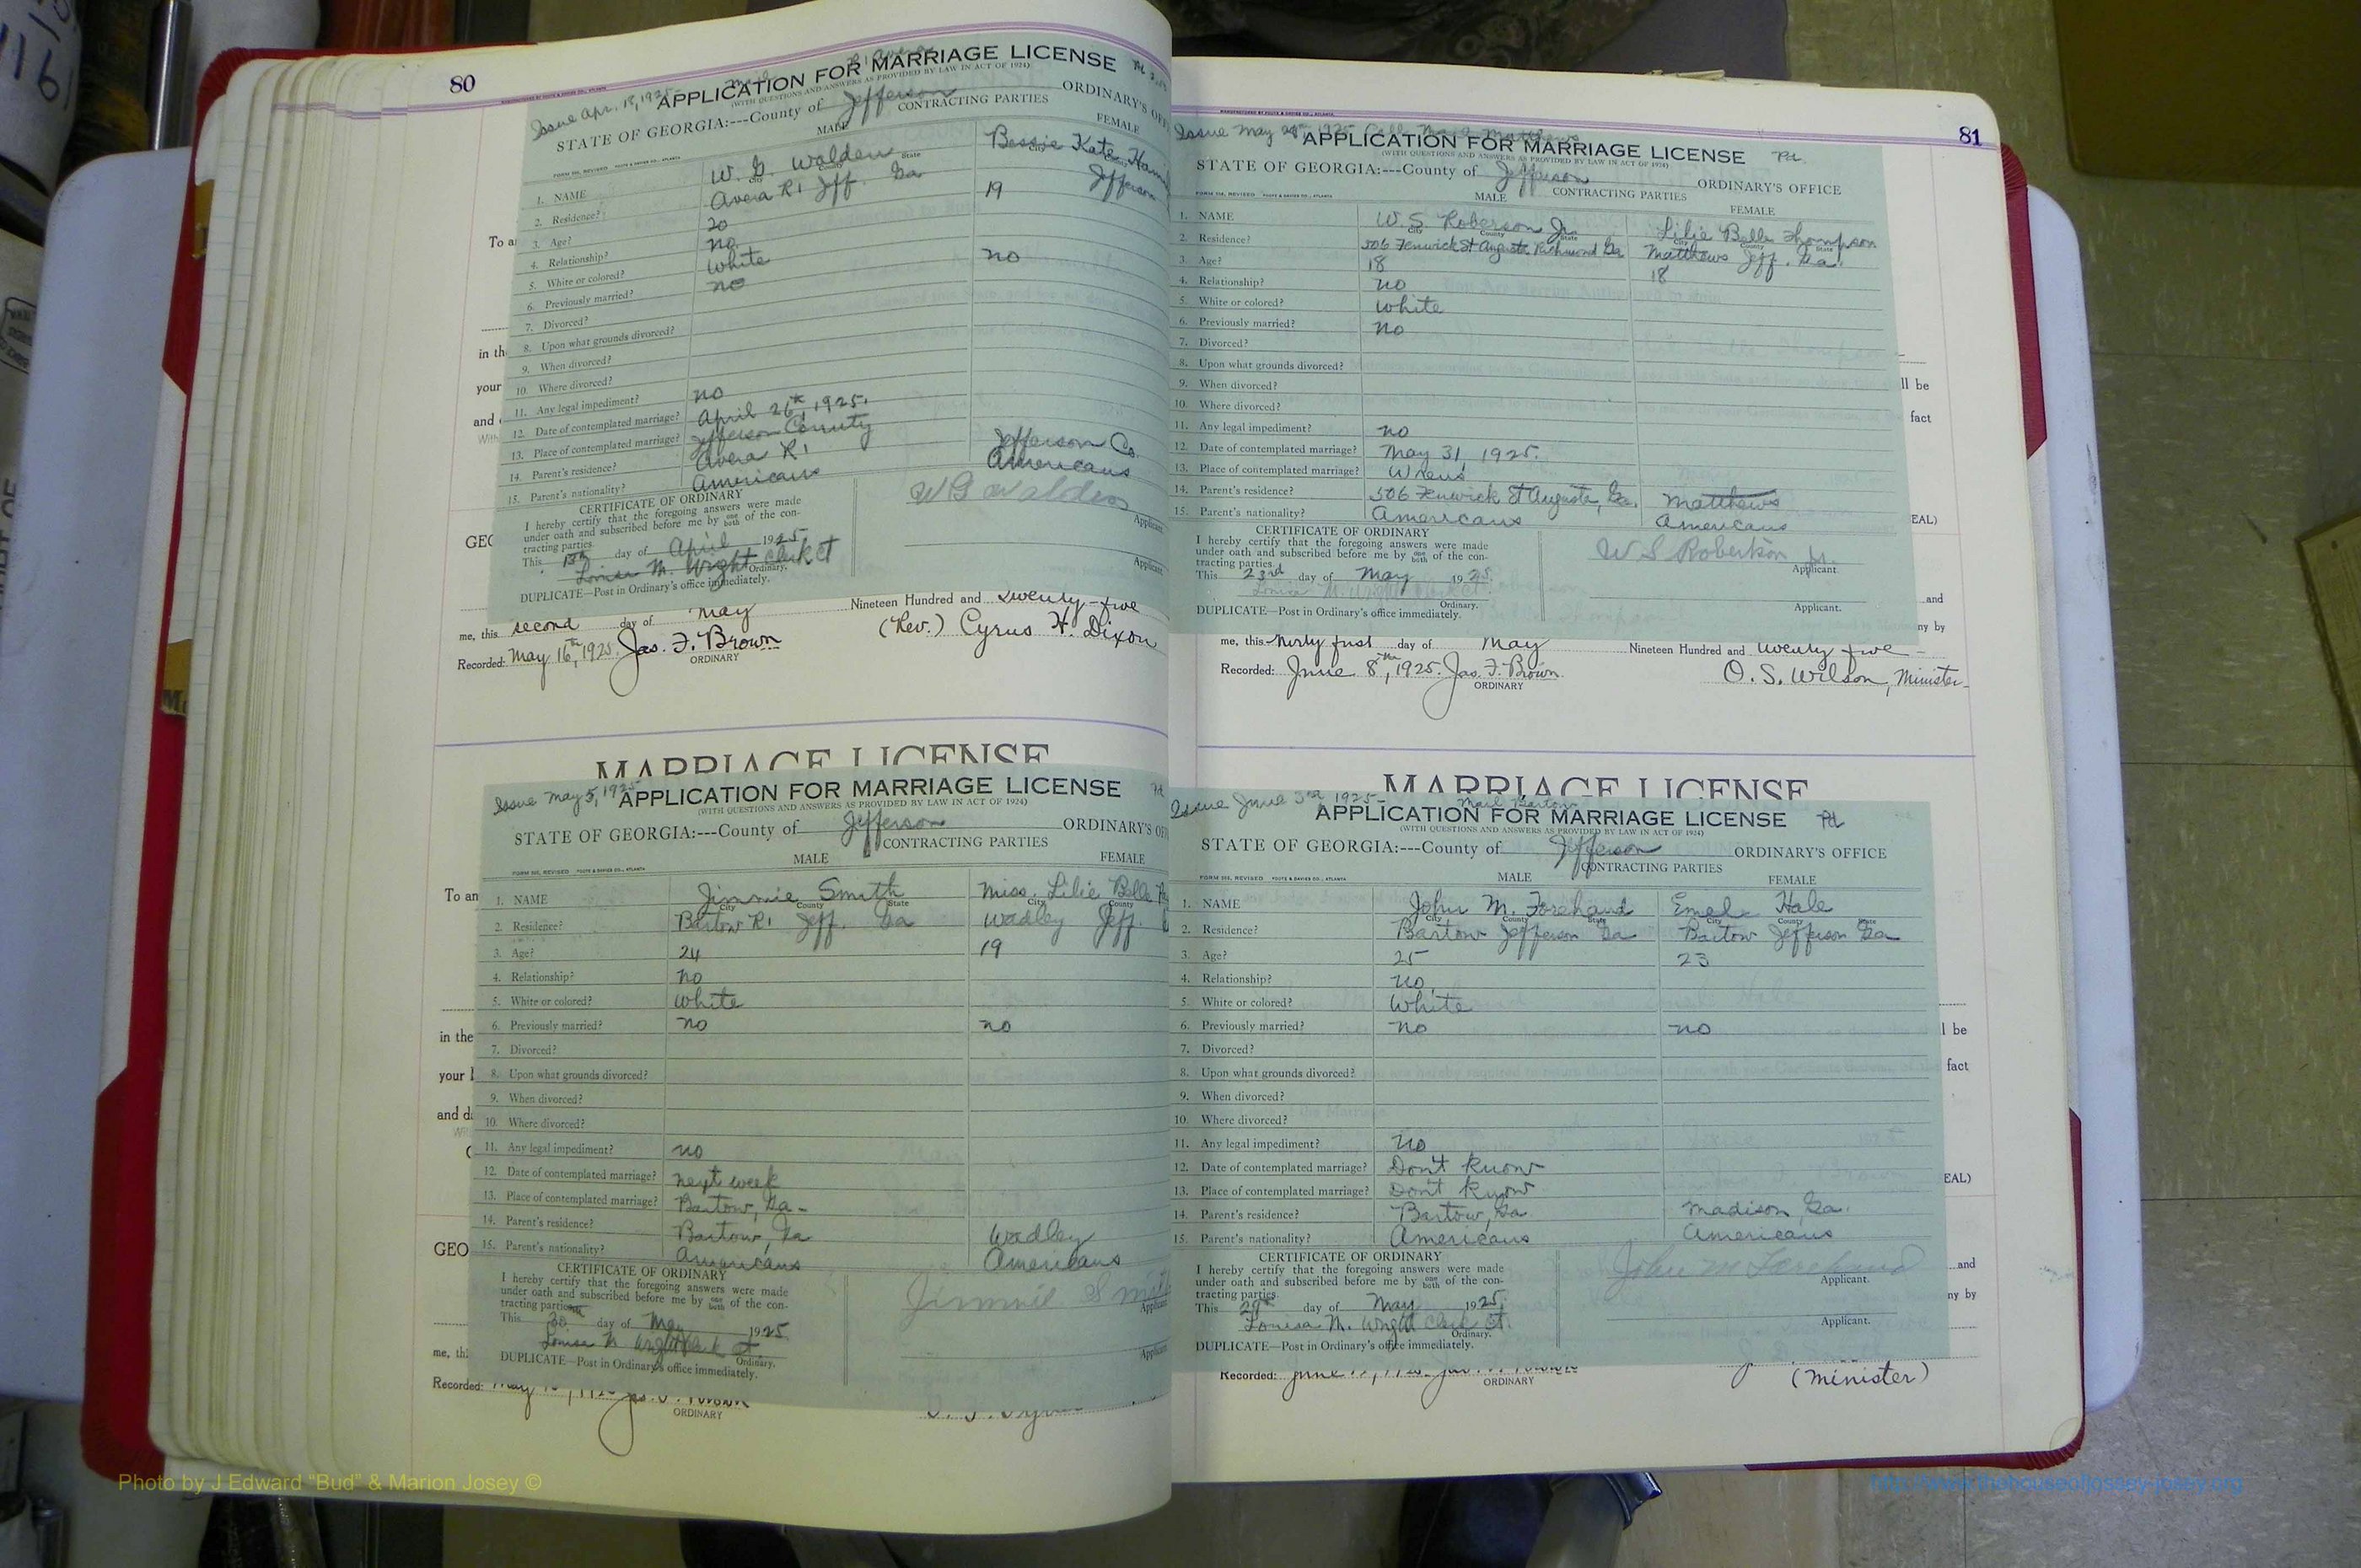 80
Issue Apr. 18, 1925
APPLICATION FOR MARRIAGE LICENSE
(WITH QUESTIONS AND ANSWERS AS PROVIDED BY LAW IN ACT OF 1924)
STATE OF GEORGIA:---County of Jefferson ORDINARY'S
CONTRACTING PARTIES
MALE FEMALE
1. NAME W. G. Walden Bessie Kate
2. Residence? Avera R1 Jeff. Ga Jefferson
3. Age? 20 19
4. Relationship? no
5. White or colored? White
6. Previously married? no no
7. Divorced?
8. Upon what grounds divorced?
9. When divorced?
10. Where divorced?
11. Any legal impediment? no
12. Date of contemplated marriage? April 26th, 1925.
13. Place of contemplated marriage? Jefferson County
14. Parent's residence? Avera R1 Jefferson Co.
15. Parent's nationality? Americans Americans
CERTIFICATE OF ORDINARY
I hereby certify that the foregoing answers were made
under oath and subscribed before me by one both of the con-
tracting parties.
This day of April 1925.
Louisa M. Wright Clerk Ct
Ordinary.
DUPLICATE—Post in Ordinary's office immediately.
W G Walden
Applicant.
Applicant.
me, this second day of May Nineteen Hundred and Twenty-five
Recorded: May 16th, 1925. Jas. F. Brown (Rev.) Cyrus H. Dixon
ORDINARY
MARRIAGE LICENSE
Issue May 5, 1925
APPLICATION FOR MARRIAGE LICENSE
(WITH QUESTIONS AND ANSWERS AS PROVIDED BY LAW IN ACT OF 1924)
STATE OF GEORGIA:---County of Jefferson ORDINARY'S
CONTRACTING PARTIES
MALE FEMALE
1. NAME Jimmie Smith Miss. Lilie Belle
2. Residence? Bartow R1 Jeff. Ga Wadley Jeff.
3. Age? 24 19
4. Relationship? no
5. White or colored? White
6. Previously married? no no
7. Divorced?
8. Upon what grounds divorced?
9. When divorced?
10. Where divorced?
11. Any legal impediment? no
12. Date of contemplated marriage? next week
13. Place of contemplated marriage? Bartow, Ga-
14. Parent's residence? Bartow, Ga Wadley
15. Parent's nationality? Americans Americans
CERTIFICATE OF ORDINARY
I hereby certify that the foregoing answers were made
under oath and subscribed before me by one both of the con-
tracting parties.
This day of May 1925
Louisa M Wright Clerk Ct
Ordinary.
DUPLICATE—Post in Ordinary's office immediately.
Jimmie Smith
Recorded:
ORDINARY
81
Issue May 1925 Matthews
APPLICATION FOR MARRIAGE LICENSE Pd.
(WITH QUESTIONS AND ANSWERS AS PROVIDED BY LAW IN ACT OF 1924)
STATE OF GEORGIA:---County of Jefferson ORDINARY'S OFFICE
CONTRACTING PARTIES
MALE FEMALE
1. NAME W. S. Roberson Jr. Lilie Belle Thompson
2. Residence? 506 Fenwick St Augusta Richmond Ga Matthews Jeff. Ga.
3. Age? 18 18
4. Relationship? no
5. White or colored? White
6. Previously married? no
7. Divorced?
8. Upon what grounds divorced?
9. When divorced?
10. Where divorced?
11. Any legal impediment? no
12. Date of contemplated marriage? May 31, 1925.
13. Place of contemplated marriage? Wrens
14. Parent's residence? 506 Fenwick St Augusta, Ga. Matthews
15. Parent's nationality? Americans Americans
CERTIFICATE OF ORDINARY
I hereby certify that the foregoing answers were made
under oath and subscribed before me by one both of the con-
tracting parties.
This 23rd day of May 1925.
Louisa M. Wright Clerk Ct.
Ordinary.
DUPLICATE—Post in Ordinary's office immediately.
W S Robertson Jr.
Applicant.
Applicant.
me, this thirty first day of May Nineteen Hundred and twenty five
Recorded: June 8th, 1925. Jas. F. Brown. O. S. Wilson, Minister
ORDINARY
MARRIAGE LICENSE
Issue June 3rd 1925- Mail Bartow
APPLICATION FOR MARRIAGE LICENSE Pd
(WITH QUESTIONS AND ANSWERS AS PROVIDED BY LAW IN ACT OF 1924)
STATE OF GEORGIA:---County of Jefferson ORDINARY'S OFFICE
CONTRACTING PARTIES
MALE FEMALE
1. NAME John M. Forehand Emele Hale
2. Residence? Bartow Jefferson Ga Bartow Jefferson Ga
3. Age? 25 23
4. Relationship? no.
5. White or colored? White
6. Previously married? no no
7. Divorced?
8. Upon what grounds divorced?
9. When divorced?
10. Where divorced?
11. Any legal impediment? no
12. Date of contemplated marriage? Don't know
13. Place of contemplated marriage? Don't know
14. Parent's residence? Bartow, Ga Madison Ga.
15. Parent's nationality? Americans Americans
CERTIFICATE OF ORDINARY
I hereby certify that the foregoing answers were made
under oath and subscribed before me by one both of the con-
tracting parties.
This 29th day of May 1925.
Louisa M. Wright Clerk Ct.
Ordinary.
DUPLICATE—Post in Ordinary's office immediately.
John M Forehand
Applicant.
Applicant.
Recorded: June
ORDINARY
(Minister)
Photo by J Edward "Bud" & Marion Josey ©
http://www.thehouseofjossey-josey.org